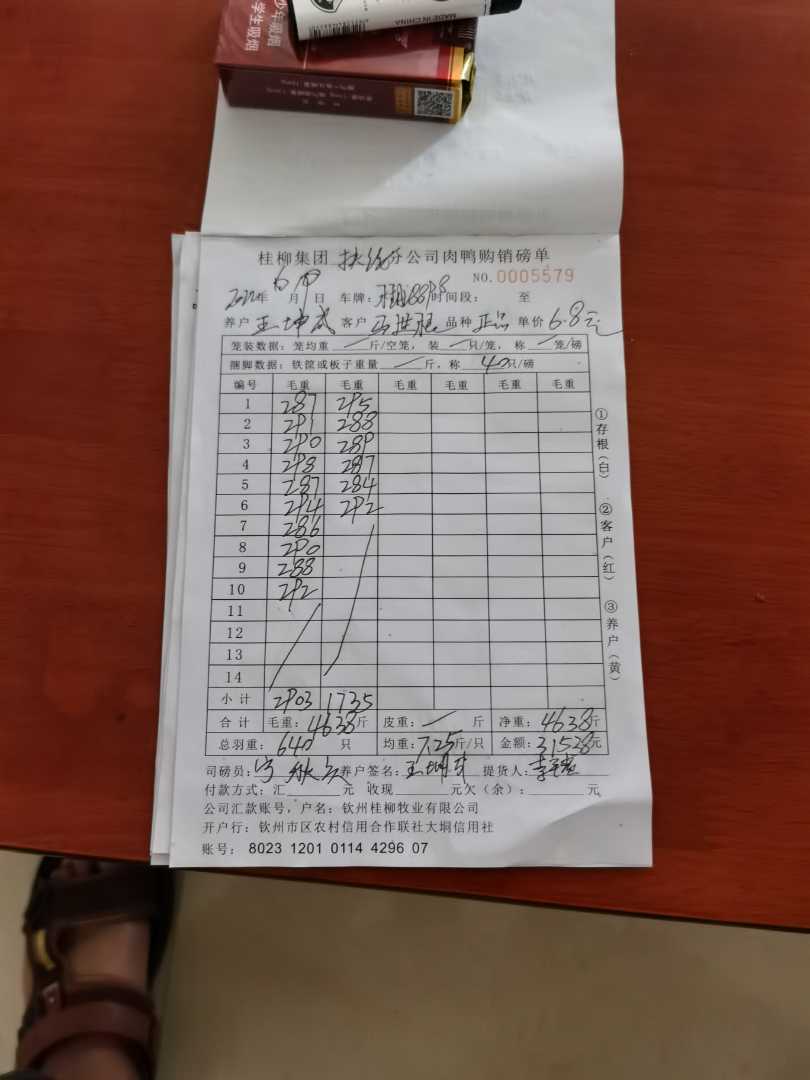 少年吸烟
学生吸烟
MADE IN CHINA
桂柳集团 分公司肉鸭购销磅单
NO.0005579
2022年 月 日 车牌: 时间段: 至
养户 王坤 客户 品种 正品 单价 6.8元
笼装数据:笼均重 / 斤/空笼, 装 / 只/笼, 称 / 笼/磅
捆脚数据:铁筐或板子重量 / 斤, 称 40只/磅
编号 毛重 毛重 毛重 毛重 毛重 毛重
1 287 295
2 291 288
3 290 289
4 298 287
5 287 284
6 294 292
7 286
8 290
9 288
10 292
11
12
13
14
小计 2903 1735
合计 毛重:4638斤 皮重:/ 斤 净重:4638斤
总羽重:640 只 均重:7.25斤/只 金额:31538元
司磅员: 养户签名:王坤 提货人:李
付款方式:汇 元 收现 元欠(余): 元
公司汇款账号,户名:钦州桂柳牧业有限公司
开户行:钦州市区农村信用合作联社大垌信用社
账号: 8023 1201 0114 4296 07
①存根(白) ②客户(红) ③养户(黄)